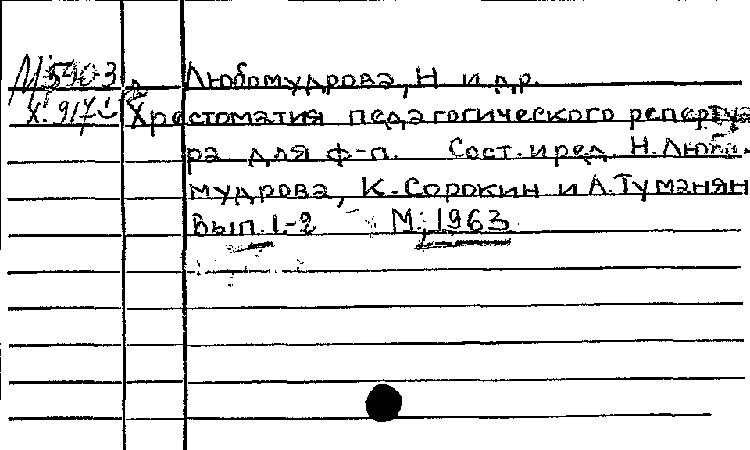 Любомудрова, Н и др.
Хрестоматия педагогического реперту
ра для ф-п. Сост. и ред. Н. Любо-
мудрова, К. Сорокин и А. Туманян
Вып. 1-2 М., 1963